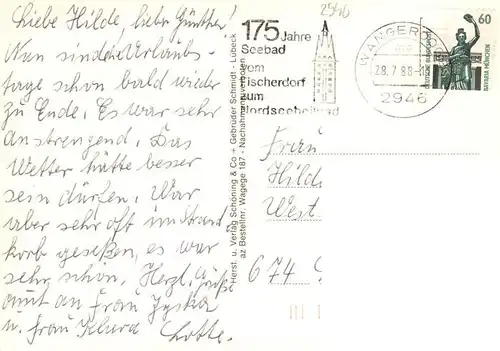 Liebe Hilde, lieber Günther!
Nun sind die Urlaubs-
tage schon bald wieder
zu Ende, Es war sehr
anstrengend, Das
Wetter hätte besser
sein dürfen, War
aber sehr oft im Strand
korb geseßen, es war
sehr schön, Herzl. Grüße
auch an Frau
u. Frau
Lotte.
Herst. u. Verlag Schöning & Co + Gebrüder Schmidt · Lübeck
az Bestellnr. Wagege 187 · Nachahmung verboten
2540
175 Jahre
Seebad
vom
Fischerdorf
zum
Nordseeheilbad
WANGEROOGE
28.7.88
2946
60
DEUTSCHE BUNDESPOST
BAVARIA MÜNCHEN
Frau
Hilde
West
674